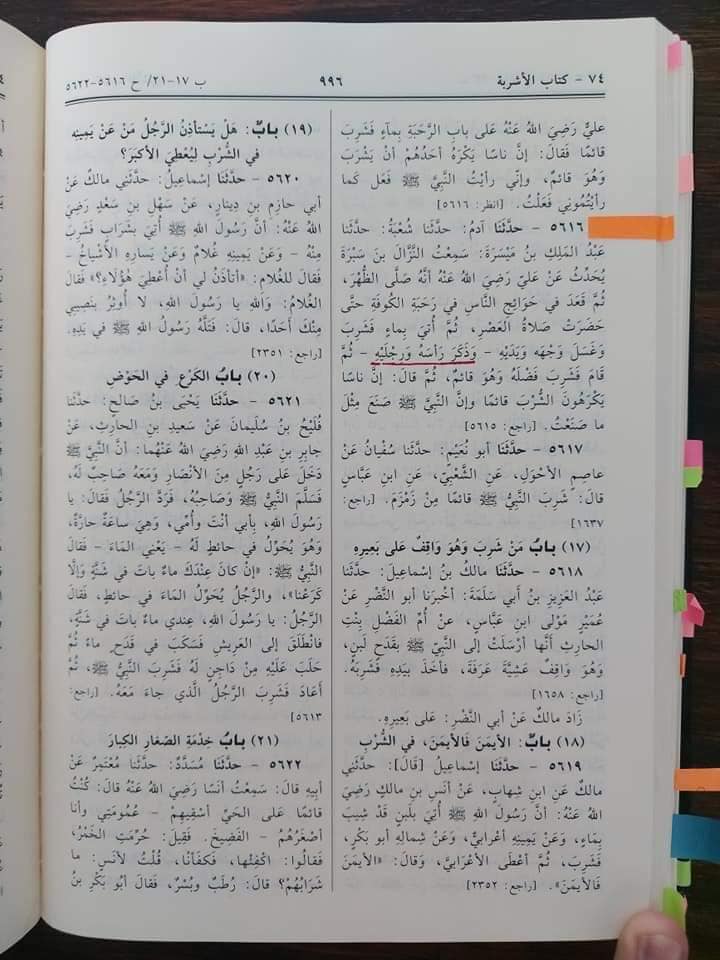 ٧٤ - كتاب الأشربة
٩٩٦
ب ١٧-٢١/ ح ٥٦١٦-٥٦٢٢
عليٌّ رَضِيَ اللهُ عَنْهُ عَلى بابِ الرَّحَبَةِ بِماءٍ فَشَرِبَ
قائمًا فَقالَ: إنَّ ناسًا يَكْرَهُ أحَدُهُمْ أنْ يَشْرَبَ
وَهُوَ قائمٌ، وإنِّي رأيْتُ النَّبِيَّ ﷺ فَعَل كَما
رأيْتُمُوني فَعَلْتُ. [انظر: ٥٦١٦]
٥٦١٦ - حدَّثنَا آدمُ: حدَّثَنا شُعْبَةُ: حدَّثَنا
عَبْدُ المَلِكِ بنُ مَيْسَرَةَ: سَمِعْتُ النَّزَّالَ بنَ سَبْرَةَ
يُحَدِّثُ عَنْ عَليّ رَضِيَ اللهُ عَنْهُ أنَّهُ صَلَّى الظُّهْرَ،
ثُمَّ قَعَدَ في حَوَائجِ النَّاسِ في رَحَبَةِ الكُوفَةِ حتَّى
حَضَرَتْ صَلاةُ العَصْرِ، ثُمَّ أُتِيَ بِماءٍ فَشَرِبَ
وَغَسَلَ وَجْهَه وَيَدَيْهِ - وَذَكَرَ رَأسَهُ وَرِجْلَيْهِ - ثُمَّ
قامَ فَشَرِبَ فَضْلَهُ وَهُوَ قائمٌ، ثُمَّ قالَ: إنَّ ناسًا
يَكْرَهُونَ الشُّرْبَ قائمًا وإنَّ النَّبِيَّ ﷺ صَنَعَ مِثْلَ
ما صَنَعْتُ. [راجع: ٥٦١٥]
٥٦١٧ - حدَّثَنَا أبو نُعَيْمٍ: حدَّثَنا سُفْيانُ عَنْ
عاصِمٍ الأحْوَلِ، عَنِ الشَّعْبيِّ، عَنِ ابنِ عَبَّاسٍ
قالَ: شَرِبَ النَّبِيُّ ﷺ قائمًا مِنْ زَمْزَمَ. [راجع:
١٦٣٧]
(١٧) بابُ مَنْ شَرِبَ وَهُوَ وَاقِفٌ عَلى بَعِيرِهِ
٥٦١٨ - حدَّثَنَا مالكُ بنُ إسْماعِيلَ: حدَّثَنا
عَبْدُ العَزِيزِ بنُ أبي سَلَمَةَ: أخْبرَنا أبو النَّضْرِ عَنْ
عُمَيْرٍ مَوْلى ابنِ عبَّاسٍ، عنْ أُمِّ الفَضْلِ بِنْتِ
الحارِثِ أنَّها أرْسَلَتْ إلى النَّبِيِّ ﷺ بِقَدَحِ لَبنٍ،
وَهُوَ وَاقِفٌ عَشِيَّةَ عَرَفَةَ، فأخَذَ بِيَدِهِ فَشَرِبَهُ.
[راجع: ١٦٥٨]
زَادَ مالكٌ عَنْ أبي النَّضْرِ: عَلى بَعِيرِهِ.
(١٨) بابٌ: الأيمَنَ فَالأيمَنَ، في الشُّرْبِ
٥٦١٩ - حدَّثَنَا إسْماعِيلُ [قَالَ]: حدَّثَنِي
مالكٌ عَنِ ابنِ شِهابٍ، عَنْ أنَسِ بنِ مالكٍ رَضِيَ
اللهُ عَنْهُ: أنَّ رَسُولَ اللهِ ﷺ أُتِيَ بِلَبنٍ قَدْ شِيبَ
بِماءٍ، وَعَنْ يَمِينِهِ أعْرابيٌّ، وَعَنْ شِمالِهِ أبو بَكْرٍ،
فَشَرِبَ، ثُمَّ أعْطَى الأعْرَابيَّ، وَقالَ: «الأيمَنَ
فَالأيمَنَ». [راجع: ٢٣٥٢]
(١٩) بابٌ: هَلْ يَسْتَأذِنُ الرَّجُلُ مَنْ عَنْ يَمِينِه
في الشُّرْبِ لِيُعْطِيَ الأكبَرَ؟
٥٦٢٠ - حدَّثَنَا إسْماعِيلُ: حدَّثَنِي مالكٌ عَنْ
أبي حازِمِ بنِ دِينارٍ، عَنْ سَهْلِ بنِ سَعْدٍ رَضِيَ
اللهُ عَنْهُ: أنَّ رَسُولَ اللهِ ﷺ أُتِيَ بِشَرَابٍ فَشَرِبَ
مِنْهُ - وَعَنْ يَمِينِهِ غُلامٌ وَعَنْ يَسارِهِ الأشْياخُ -
فَقالَ للغُلامِ: «أتأذَنُ لي أنْ أُعْطِيَ هٰؤُلاءِ؟» فَقالَ
الغُلامُ: وَاللهِ يا رَسُولَ اللهِ، لا أُوثِرُ بنَصِيبي
مِنْكَ أحَدًا، قالَ: فَتَلَّهُ رَسُولُ اللهِ ﷺ في يَدِهِ.
[راجع: ٢٣٥١]
(٢٠) بابُ الكَرْعِ في الحَوْضِ
٥٦٢١ - حدَّثَنَا يَحْيَى بنُ صَالِحٍ: حدَّثَنا
فُلَيْحُ بنُ سُلَيْمانَ عَنْ سَعِيدِ بنِ الحارِثِ، عَنْ
جابِرِ بنِ عَبْدِ اللهِ رَضِيَ اللهُ عَنْهُما: أنَّ النَّبِيَّ ﷺ
دَخَلَ عَلى رَجُلٍ مِنَ الأنْصَارِ وَمَعَهُ صَاحِبٌ لَهُ،
فَسَلَّمَ النَّبِيُّ ﷺ وَصَاحِبُهُ، فَرَدَّ الرَّجُلُ فَقالَ: يا
رَسُولَ اللهِ، بأبي أنْتَ وأُمِّي، وَهِيَ ساعَةٌ حارَّةٌ،
وَهُوَ يُحَوِّلُ في حائطٍ لَهُ - يَعْنِي المَاءَ - فَقالَ
النَّبِيُّ ﷺ: «إنْ كانَ عِنْدَكَ ماءٌ باتَ في شَنَّةٍ وَإلَّا
كَرَعْنا»، والرَّجُلُ يُحَوِّلُ المَاءَ في حائطٍ، فَقالَ
الرَّجُلُ: يا رَسُولَ اللهِ، عِنْدِي ماءٌ باتَ في شَنَّةٍ،
فانْطَلَقَ إلى العَرِيشِ فَسَكَبَ في قَدَحٍ ماءً ثُمَّ
حَلَبَ عَلَيْهِ مِنْ دَاجِنٍ لَهُ فَشَرِبَ النَّبِيُّ ﷺ، ثُمَّ
أعَادَ فَشَرِبَ الرَّجُلُ الَّذي جاءَ مَعَهُ. [راجع:
٥٦١٣]
(٢١) بابُ خِدْمَةِ الصِّغَارِ الكِبارَ
٥٦٢٢ - حدَّثَنَا مُسَدَّدٌ: حدَّثَنا مُعْتَمِرٌ عَنْ
أبِيهِ قالَ: سَمِعْتُ أنَسًا رَضِيَ اللهُ عَنْهُ قالَ: كُنْتُ
قائمًا عَلى الحَيِّ أسْقِيهِمْ - عُمُومَتي وأنا
أصْغَرُهُمْ - الفَضِيخَ. فَقِيلَ: حُرِّمَتِ الخَمْرُ،
فَقالُوا: اكْفِئْها، فَكَفَأنَا. قُلْتُ لأنَسٍ: ما
شَرَابُهُمْ؟ قالَ: رُطَبٌ وبُسْرٌ، فَقالَ أبُو بَكْرِ بنُ